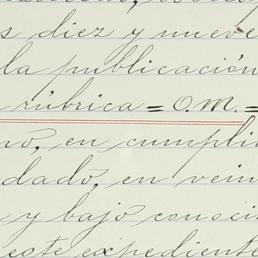 s diez y nueve
la publicación
rúbrica = O.M. =
no, en cumpli
dado, en vein
y bajo conoci
este expediente